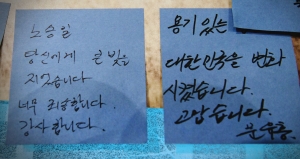 노승일
당신에게 큰 빚을
지었습니다
너무 죄송합니다.
감사합니다.
용기 있는
대한민국은 변화
시켰습니다.
고맙습니다.